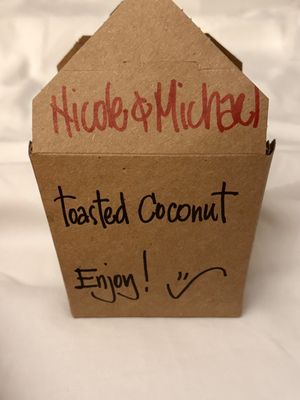 Nicole & Michael
toasted Coconut
Enjoy!